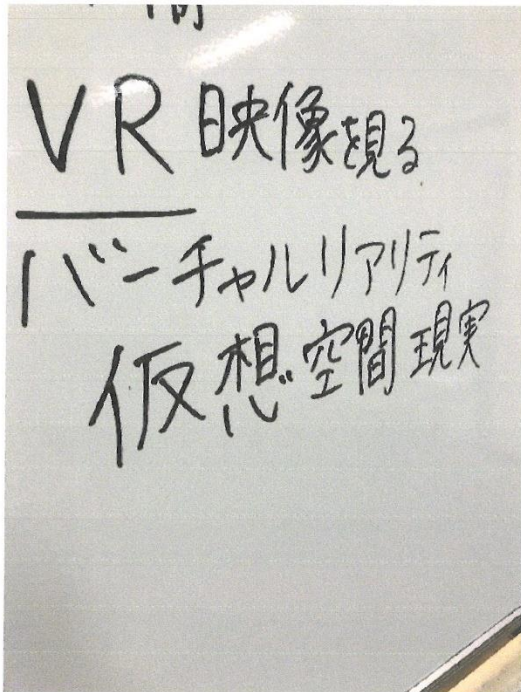 VR 映像を見る
バーチャルリアリティ
仮想空間現実